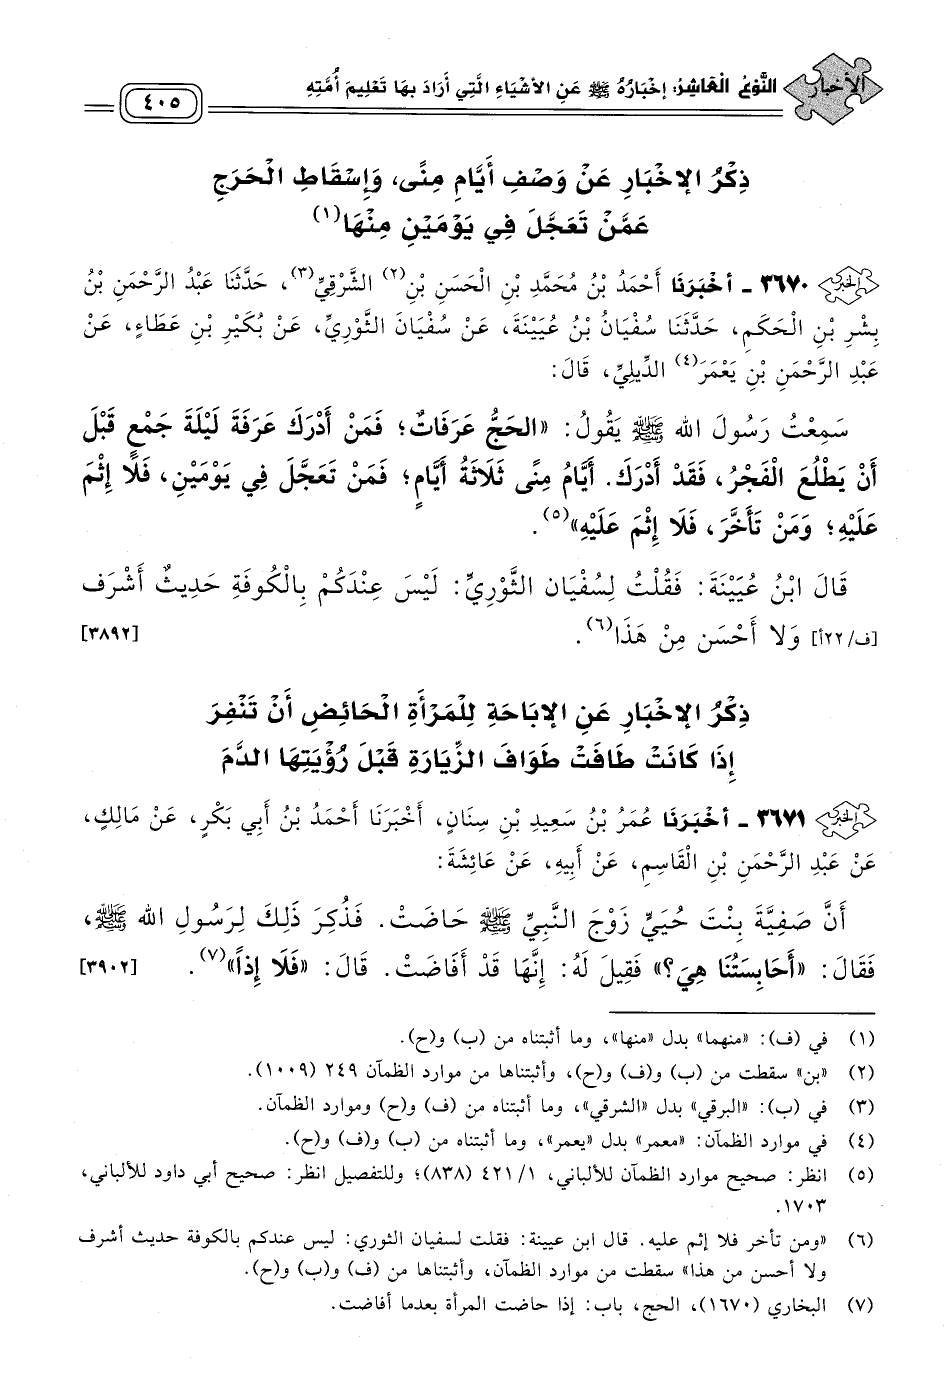 الأخبار
النَّوْعُ الْعَاشِرُ: إِخْبَارُهُ ﷺ عَنِ الأَشْيَاءِ الَّتِي أَرَادَ بِهَا تَعْلِيمَ أُمَّتِهِ
٤٠٥
ذِكْرُ الإِخْبَارِ عَنْ وَصْفِ أَيَّامِ مِنًى، وَإِسْقَاطِ الْحَرَجِ
عَمَّنْ تَعَجَّلَ فِي يَوْمَيْنِ مِنْهَا(١)
٣٦٧٠ ـ أخْبَرَنَا أَحْمَدُ بْنُ مُحَمَّدِ بْنِ الْحَسَنِ بْنِ(٢) الشَّرْقِيِّ(٣)، حَدَّثَنَا عَبْدُ الرَّحْمَنِ بْنُ
بِشْرِ بْنِ الْحَكَمِ، حَدَّثَنَا سُفْيَانُ بْنُ عُيَيْنَةَ، عَنْ سُفْيَانَ الثَّوْرِيِّ، عَنْ بُكَيْرِ بْنِ عَطَاءٍ، عَنْ
عَبْدِ الرَّحْمَنِ بْنِ يَعْمَرَ(٤) الدِّيلِيِّ، قَالَ:
سَمِعْتُ رَسُولَ الله ﷺ يَقُولُ: «الحَجُّ عَرَفَاتٌ؛ فَمَنْ أَدْرَكَ عَرَفَةَ لَيْلَةَ جَمْعٍ قَبْلَ
أَنْ يَطْلُعَ الْفَجْرُ، فَقَدْ أَدْرَكَ. أَيَّامُ مِنًى ثَلَاثَةُ أَيَّامٍ؛ فَمَنْ تَعَجَّلَ فِي يَوْمَيْنِ، فَلَا إِثْمَ
عَلَيْهِ؛ وَمَنْ تَأَخَّرَ، فَلَا إِثْمَ عَلَيْهِ»(٥).
قَالَ ابْنُ عُيَيْنَةَ: فَقُلْتُ لِسُفْيَانَ الثَّوْرِيِّ: لَيْسَ عِنْدَكُمْ بِالْكُوفَةِ حَدِيثٌ أَشْرَفَ
[ف/٢٢أ] وَلا أَحْسَنَ مِنْ هَذَا(٦). [٣٨٩٢]
ذِكْرُ الإِخْبَارِ عَنِ الإِبَاحَةِ لِلْمَرْأَةِ الْحَائِضِ أَنْ تَنْفِرَ
إِذَا كَانَتْ طَافَتْ طَوَافَ الزِّيَارَةِ قَبْلَ رُؤْيَتِهَا الدَّمَ
٣٦٧١ ـ أخْبَرَنَا عُمَرُ بْنُ سَعِيدِ بْنِ سِنَانٍ، أَخْبَرَنَا أَحْمَدُ بْنُ أَبِي بَكْرٍ، عَنْ مَالِكٍ،
عَنْ عَبْدِ الرَّحْمَنِ بْنِ الْقَاسِمِ، عَنْ أَبِيهِ، عَنْ عَائِشَةَ:
أَنَّ صَفِيَّةَ بِنْتَ حُيَيٍّ زَوْجَ النَّبِيِّ ﷺ حَاضَتْ. فَذُكِرَ ذَلِكَ لِرَسُولِ الله ﷺ،
فَقَالَ: «أَحَابِسَتُنَا هِيَ؟» فَقِيلَ لَهُ: إِنَّهَا قَدْ أَفَاضَتْ. قَالَ: «فَلَا إِذاً»(٧). [٣٩٠٢]
(١) في (ف): «منهما» بدل «منها»، وما أثبتناه من (ب) و(ح).
(٢) «بن» سقطت من (ب) و(ف) و(ح)، وأثبتناها من موارد الظمآن ٢٤٩ (١٠٠٩).
(٣) في (ب): «البرقي» بدل «الشرقي»، وما أثبتناه من (ف) و(ح) وموارد الظمآن.
(٤) في موارد الظمآن: «معمر» بدل «يعمر»، وما أثبتناه من (ب) و(ف) و(ح).
(٥) انظر: صحيح موارد الظمآن للألباني، ٤٢١/١ (٨٣٨)؛ وللتفصيل انظر: صحيح أبي داود للألباني،
١٧٠٣.
(٦) «ومن تأخر فلا إثم عليه. قال ابن عيينة: فقلت لسفيان الثوري: ليس عندكم بالكوفة حديث أشرف
ولا أحسن من هذا» سقطت من موارد الظمآن، وأثبتناها من (ف) و(ب) و(ح).
(٧) البخاري (١٦٧٠)، الحج، باب: إذا حاضت المرأة بعدما أفاضت.